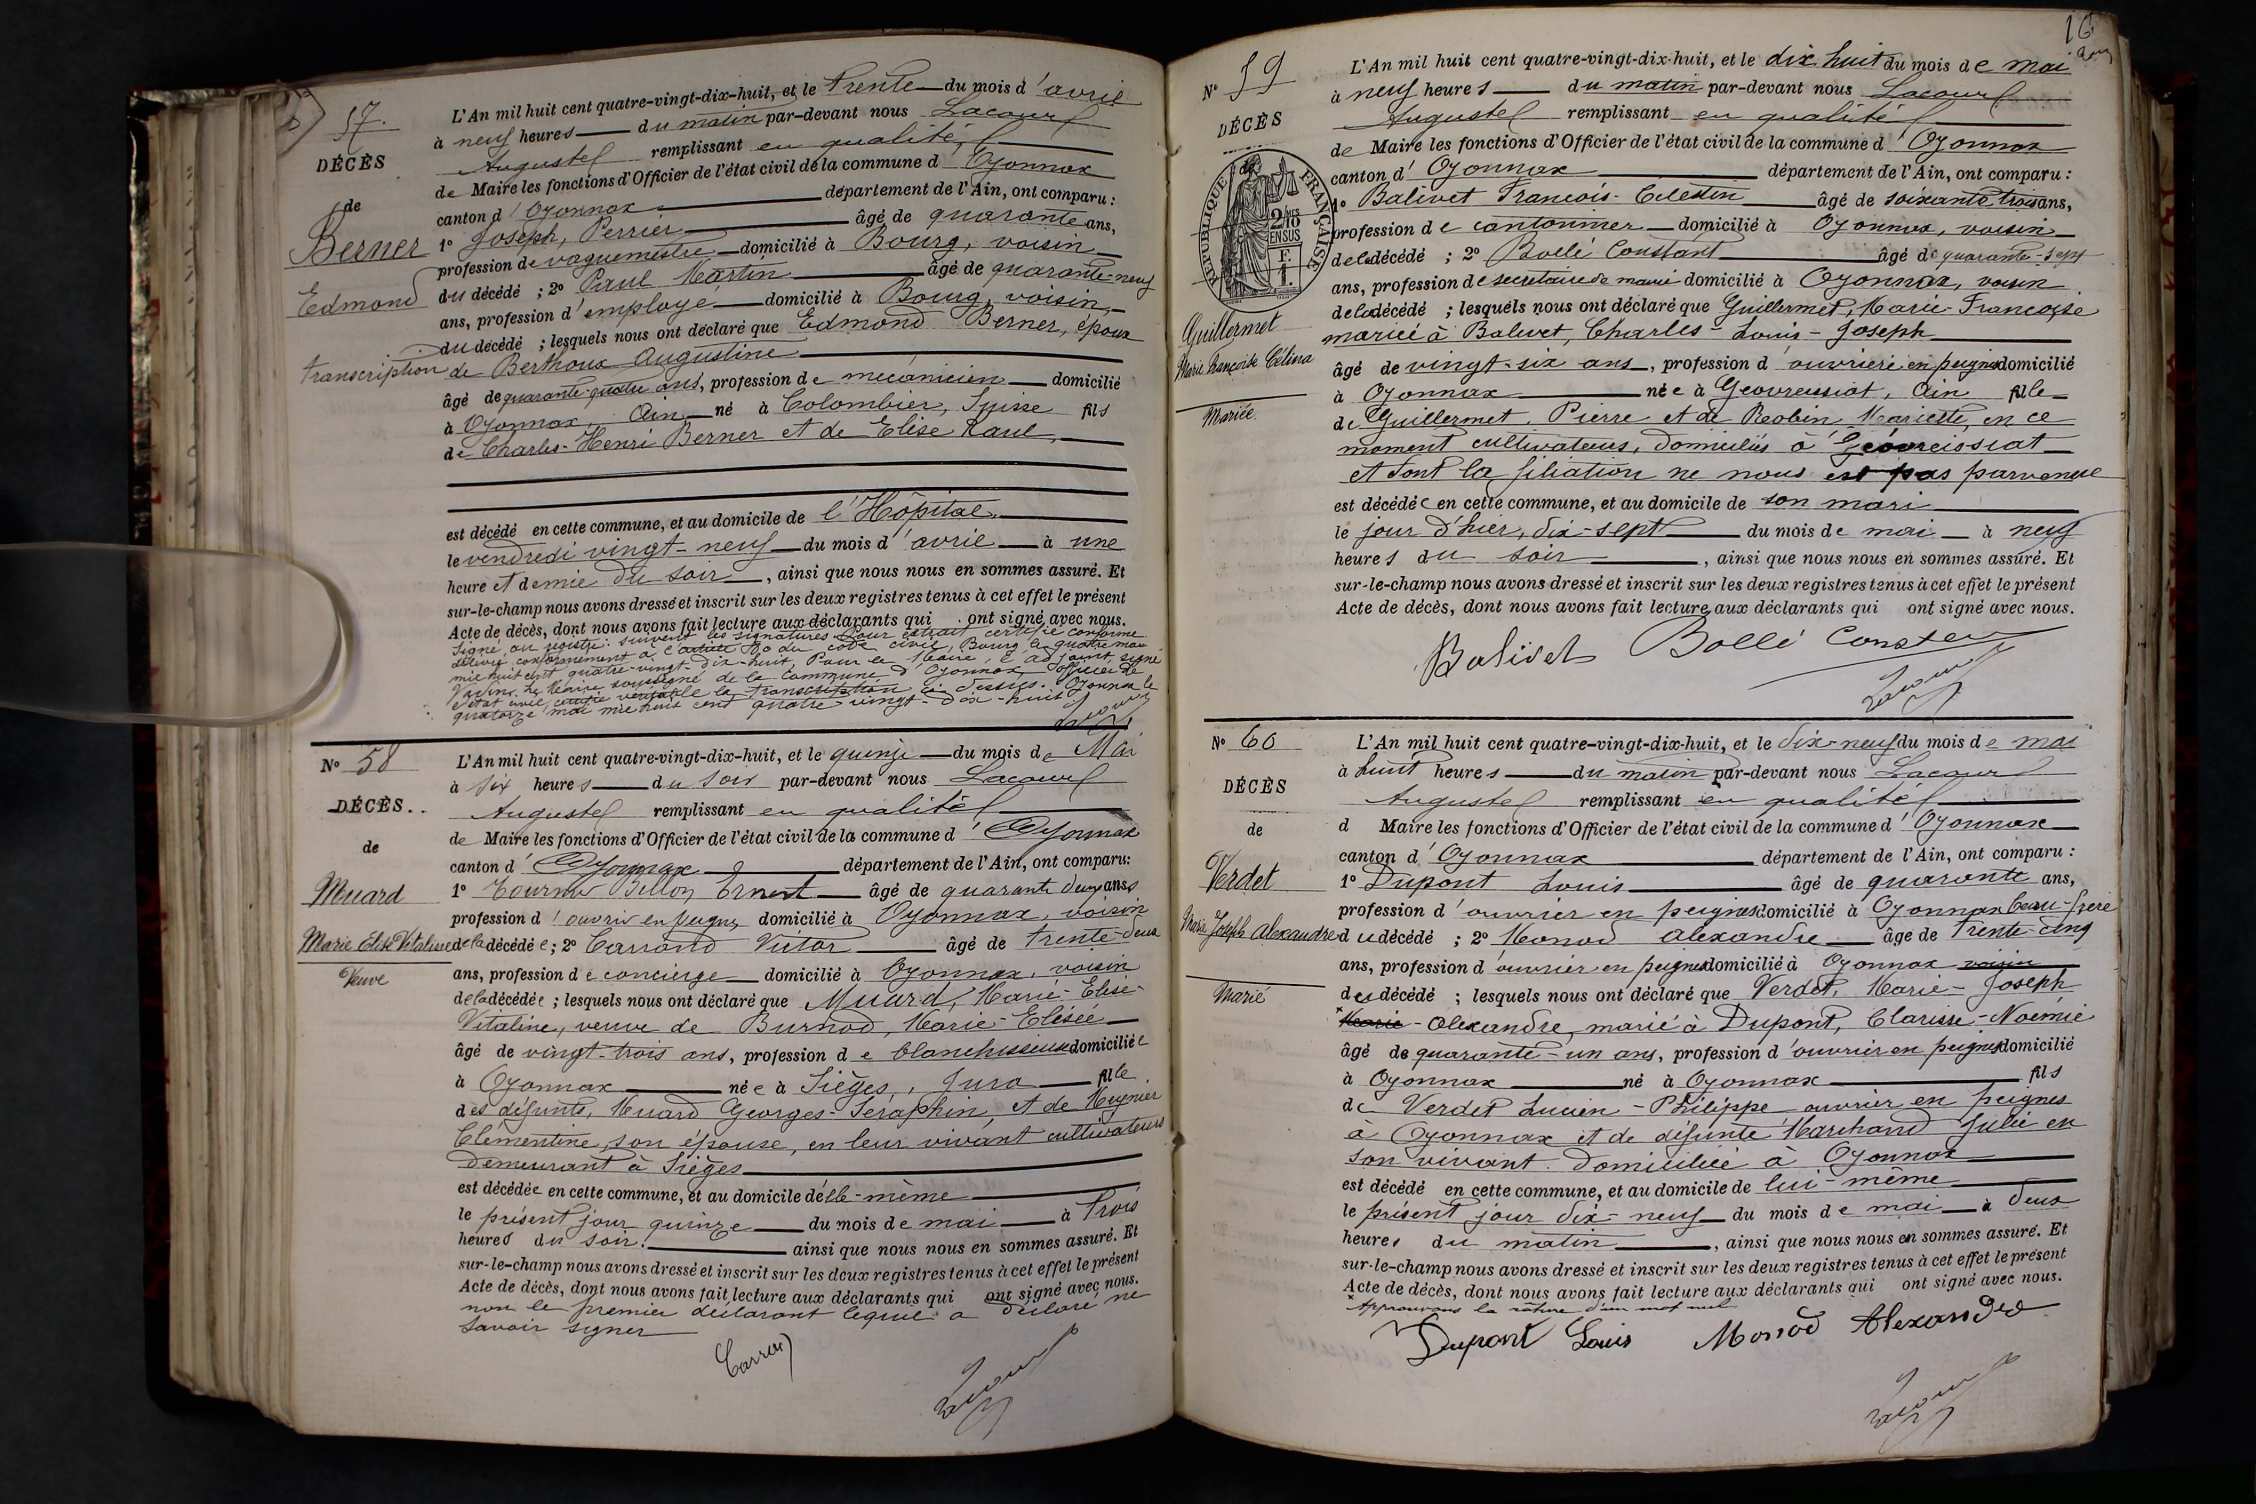 57.
DÉCÈS
de
Berner
Edmond
transcription
L'An mil huit cent quatre-vingt-dix-huit, et le trente du mois d'avril
à neuf heures du matin par-devant nous Lacour
Auguste remplissant en qualité
de Maire les fonctions d'Officier de l'état civil de la commune d'Oyonnax
canton d'Oyonnax département de l'Ain, ont comparu :
1° Joseph, Perrier âgé de quarante ans,
profession de vaguemestre domicilié à Bourg, voisin
du décédé ; 2° Paul Martin âgé de quarante-neuf
ans, profession d'employé domicilié à Bourg, voisin,
du décédé ; lesquels nous ont déclaré que Edmond Berner, époux
de Berthoux Augustine
âgé de quarante-quatre ans, profession de mécanicien domicilié
à Oyonnax, Ain, né à Colombier, Suisse fils
de Charles-Henri Berner et de Elise Raul,
est décédé en cette commune, et au domicile de l'Hôpital
le vendredi vingt-neuf du mois d'avril à une
heure et demie du soir, ainsi que nous nous en sommes assuré. Et
sur-le-champ nous avons dressé et inscrit sur les deux registres tenus à cet effet le présent
Acte de décès, dont nous avons fait lecture aux déclarants qui ont signé avec nous.
Signé au registre: suivent les signatures. Pour extrait certifié conforme
délivré conformément à l'article 80 du code civil, Bourg le quatre mai
mil huit cent quatre-vingt-dix-huit, Pour le Maire, l'adjoint, signé
Le Maire soussigné de la commune d'Oyonnax officier de
l'état civil certifie véritable la transcription ci-dessus. Oyonnax le
quatorze mai mil huit cent quatre-vingt-dix-huit
Lacour
N° 58
DÉCÈS
de
Muard
Marie Elise Vitaline
Veuve
L'An mil huit cent quatre-vingt-dix-huit, et le quinze du mois de Mai
à six heures du soir par-devant nous Lacour
Auguste remplissant en qualité
de Maire les fonctions d'Officier de l'état civil de la commune d'Oyonnax
canton d'Oyonnax département de l'Ain, ont comparu:
1° Tournier Billon Ernest âgé de quarante deux ans,
profession d'ouvrier en peignes domicilié à Oyonnax, voisin
de la décédée; 2° Carrand Victor âgé de trente-deux
ans, profession de concierge domicilié à Oyonnax, voisin
de la décédée ; lesquels nous ont déclaré que Muard, Marie-Elise-
Vitaline, veuve de Burnod, Marie-Elisée
âgé de vingt-trois ans, profession de blanchisseuse domiciliée
à Oyonnax née à Sièges, Jura fille
des défunts, Muard Georges-Séraphin, et de Meynier
Clémentine, son épouse, en leur vivant cultivateurs
demeurant à Sièges
est décédée en cette commune, et au domicile d'elle-même
le présent jour quinze du mois de mai à trois
heures du soir. ainsi que nous nous en sommes assuré. Et
sur-le-champ nous avons dressé et inscrit sur les deux registres tenus à cet effet le présent
Acte de décès, dont nous avons fait lecture aux déclarants qui ont signé avec nous.
non le premier déclarant lequel a déclaré ne
savoir signer
Carrand
Lacour
16
N° 59
DÉCÈS
de
RÉPUBLIQUE FRANÇAISE
2/10 EN SUS
F.
1.
Guillermet
Marie Françoise Célina
Mariée
L'An mil huit cent quatre-vingt-dix-huit, et le dix huit du mois de mai
à neuf heures du matin par-devant nous Lacour
Auguste remplissant en qualité
de Maire les fonctions d'Officier de l'état civil de la commune d'Oyonnax
canton d'Oyonnax département de l'Ain, ont comparu :
1° Balivet François-Célestin âgé de soixante trois ans,
profession de cantonnier domicilié à Oyonnax, voisin
de la décédé ; 2° Bollé Constant âgé de quarante-sept
ans, profession de secrétaire de mairie domicilié à Oyonnax, voisin
de la décédé ; lesquels nous ont déclaré que Guillermet, Marie-Françoise
mariée à Balivet, Charles-Louis-Joseph
âgé de vingt-six ans, profession d'ouvrière en peignes domicilié
à Oyonnax née à Geovressiat, Ain fille
de Guillermet, Pierre et de Reobin Mariette, en ce
moment cultivateurs, domiciliés à Géovreissiat
et dont la filiation ne nous est pas parvenue
est décédée en cette commune, et au domicile de son mari
le jour d'hier, dix-sept du mois de mai à neuf
heures du soir, ainsi que nous nous en sommes assuré. Et
sur-le-champ nous avons dressé et inscrit sur les deux registres tenus à cet effet le présent
Acte de décès, dont nous avons fait lecture aux déclarants qui ont signé avec nous.
Balivet Bollé Constant
Lacour
N° 60
DÉCÈS
de
Verdet
Marie Joseph Alexandre
Marié
L'An mil huit cent quatre-vingt-dix-huit, et le dix-neuf du mois de mai
à huit heures du matin par-devant nous Lacour
Auguste remplissant en qualité
d Maire les fonctions d'Officier de l'état civil de la commune d'Oyonnax
canton d'Oyonnax département de l'Ain, ont comparu :
1° Dupont Louis âgé de quarante ans,
profession d'ouvrier en peignes domicilié à Oyonnax beau-frère
du décédé ; 2° Monod Alexandre âgé de trente-cinq
ans, profession d'ouvrier en peignes domicilié à Oyonnax voisin
du décédé ; lesquels nous ont déclaré que Verdet, Marie-Joseph
Marie-Alexandre, marié à Dupont, Clarisse-Noémie
âgé de quarante-un ans, profession d'ouvrier en peignes domicilié
à Oyonnax né à Oyonnax fils
de Verdet Lucien-Philippe ouvrier en peignes
à Oyonnax et de défunte Marchand Julie en
son vivant domiciliée à Oyonnax
est décédé en cette commune, et au domicile de lui-même
le présent jour dix-neuf du mois de mai à deux
heures du matin, ainsi que nous nous en sommes assuré. Et
sur-le-champ nous avons dressé et inscrit sur les deux registres tenus à cet effet le présent
Acte de décès, dont nous avons fait lecture aux déclarants qui ont signé avec nous.
Approuvons la rature d'un mot nul
Dupont Louis Monod Alexandre
Lacour